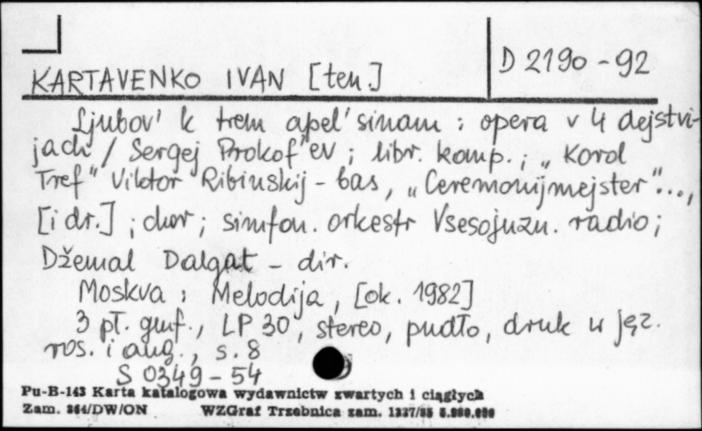 KARTAVENKO IVAN [ten.]
D 2190-92
Ljubov' k trem apel'sinam : opera v 4 dejstvi-
jach / Sergej Prokof'ev ; libr. komp. ; „Korol
Tref" Viktor Ribinskij - bas, „Ceremonijmejster"...,
[i dr.] ; chor ; simfon. orkestr Vsesojuzn. radio ;
Džemal Dalgat - dir.
Moskva : Melodija, [ok. 1982]
3 pł. gmf., LP 30, stereo, pudło, druk w jęz.
ros. i ang., s. 8
S 0349-54
Pu-B-143 Karta katalogowa wydawnictw zwartych i ciągłych
Zam. 364/DW/ON WZGraf Trzebnica zam. 1327/85 5.000.000